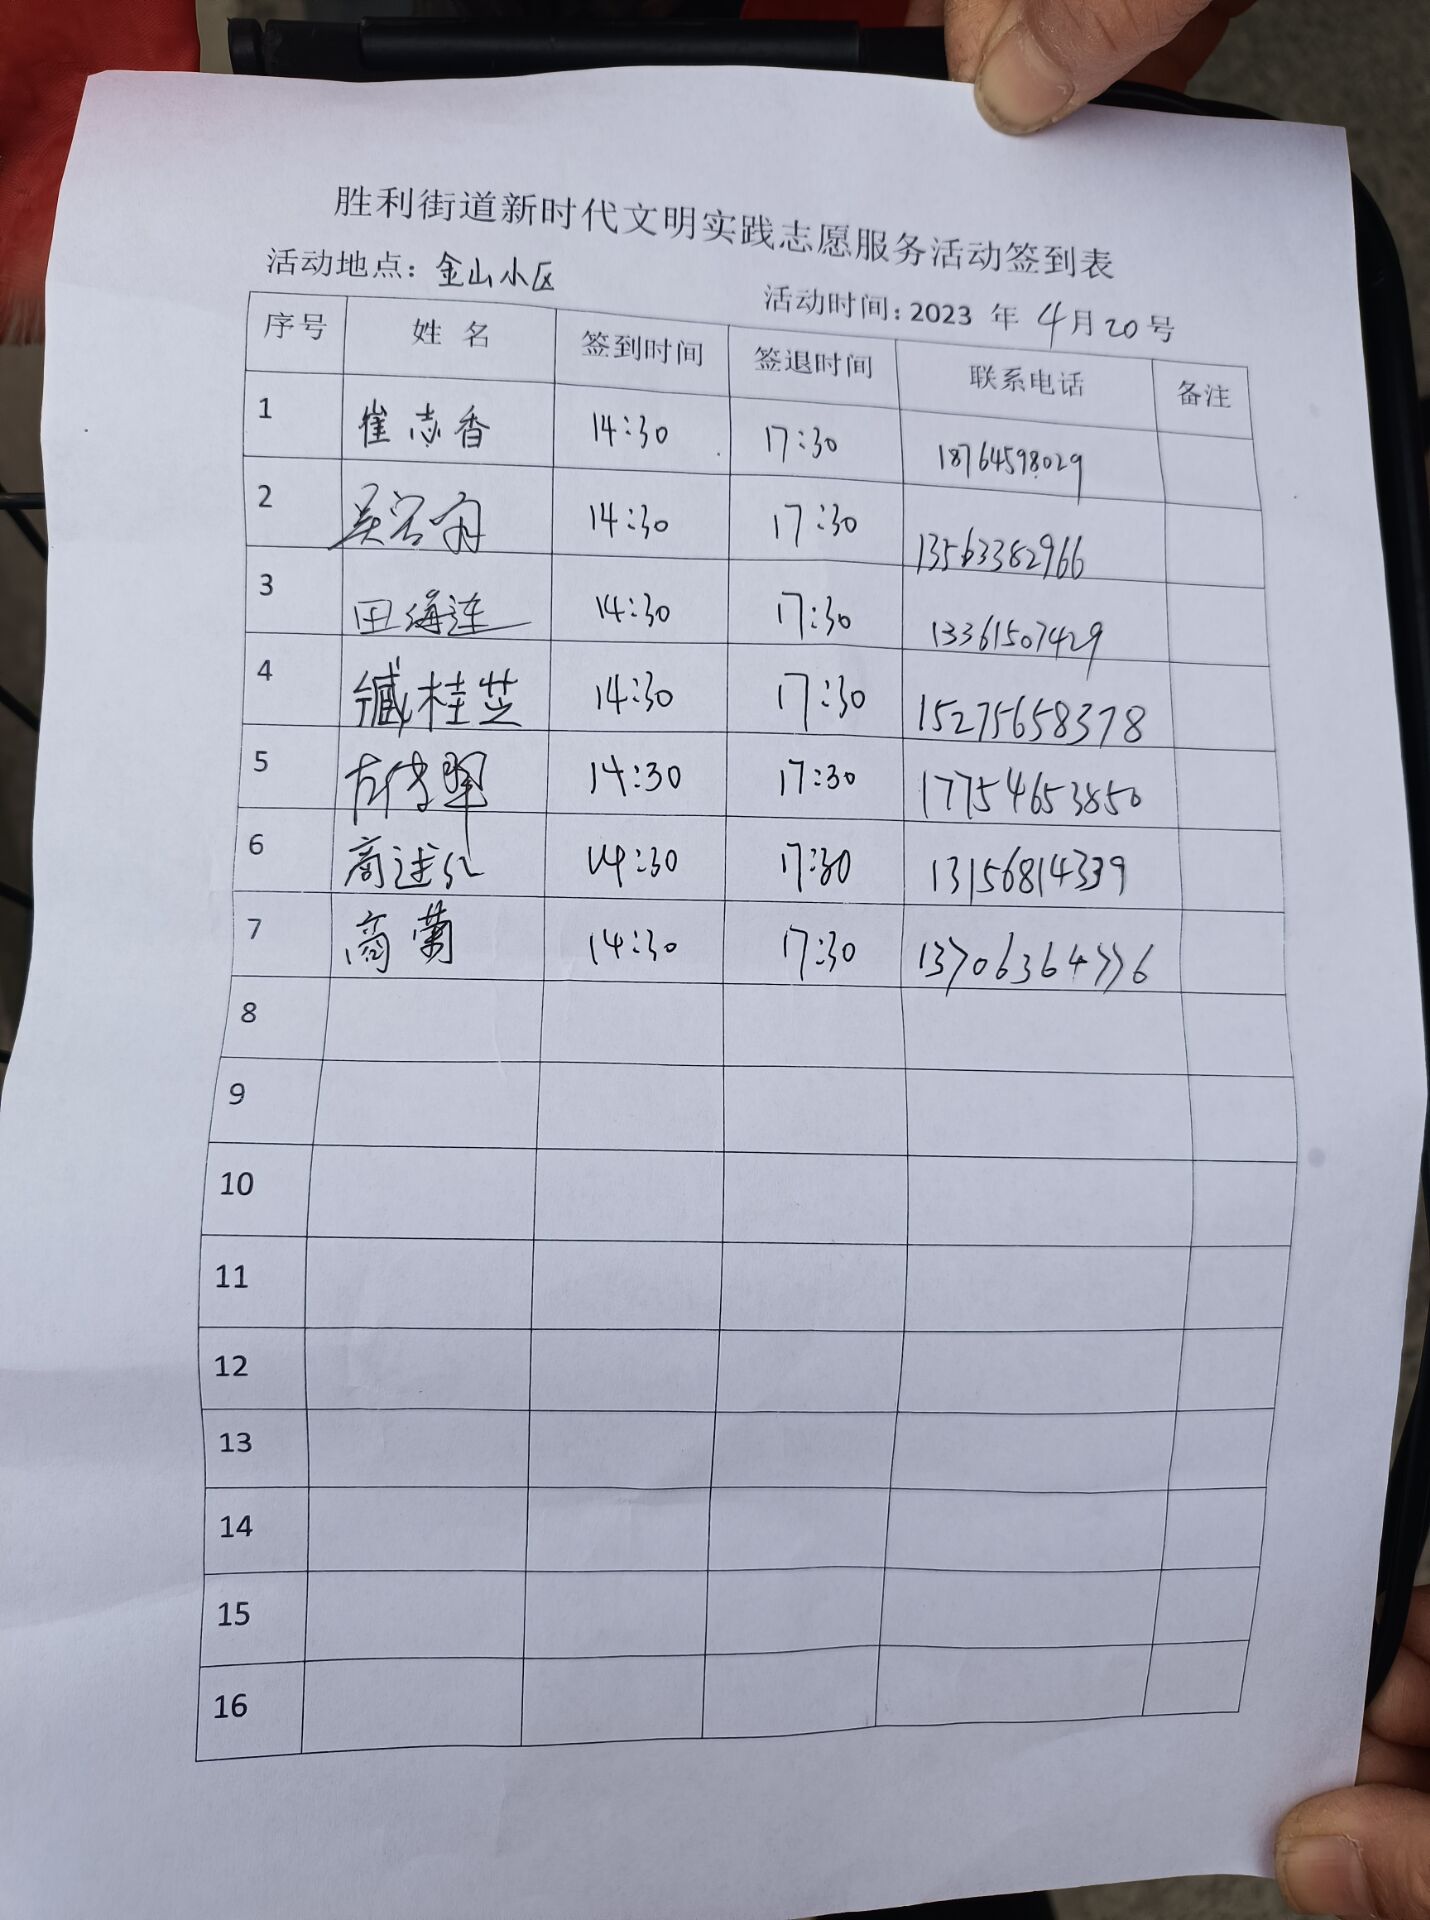 胜利街道新时代文明实践志愿服务活动签到表
活动地点：金山小区
活动时间：2023 年 4月20号
序号 姓 名 签到时间 签退时间 联系电话 备注
1 崔志香 14:30 17:30 18764598029
2 14:30 17:30 13563382966
3 田海连 14:30 17:30 13361507429
4 臧桂芝 14:30 17:30 15275658378
5 14:30 17:30 17754653850
6 商述 14:30 17:30 13156814339
7 商 14:30 17:30 13706364776
8
9
10
11
12
13
14
15
16